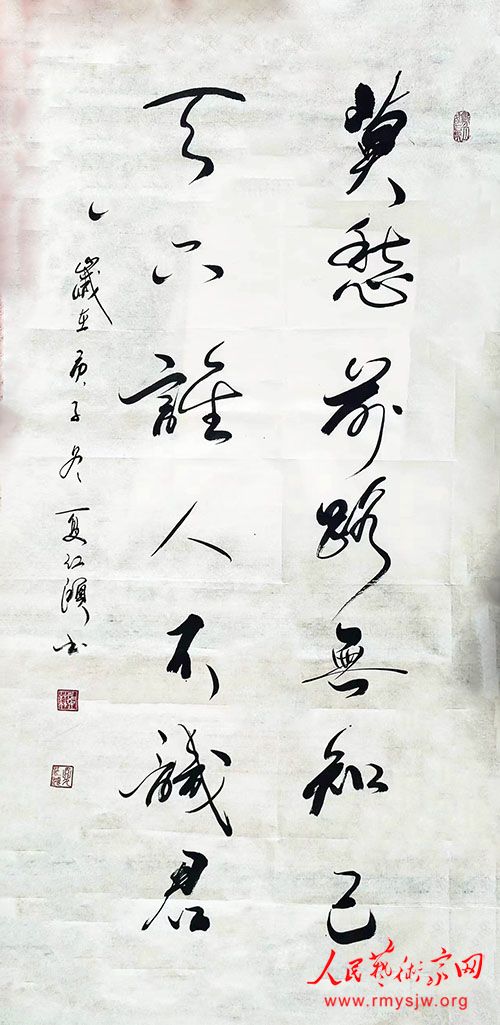 莫愁前路無知己
天下誰人不識君
歲在庚子冬夏
人民藝術家网
www.rmysjw.org